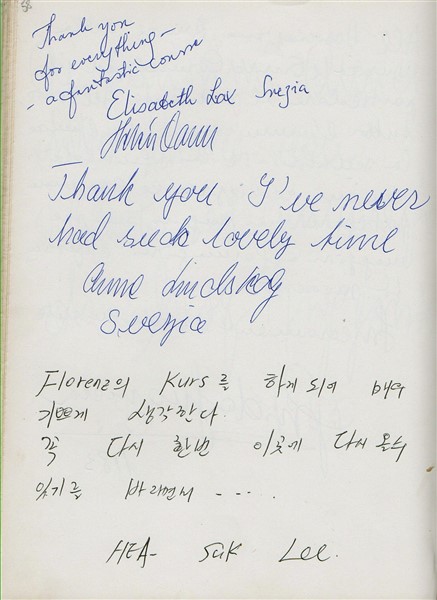 Thank you
for everything –
- a fantastic course
Elisabeth Lax Svezia
Thank you I've never
had such lovely time
Anna Lindskog
Svezia
Florenz의 Kurs를 하게 되어 매우
기쁘게 생각한다.
꼭 다시 한번 이곳에 다시 올수
있기를 바라면서 - - - .
HEA- SUK Lee.